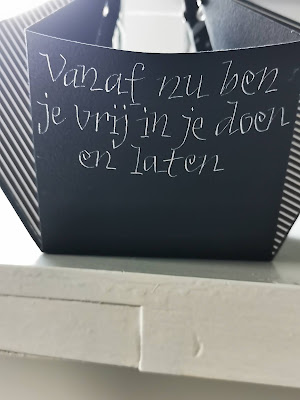 Vanaf nu ben
je vrij in je doen
en laten